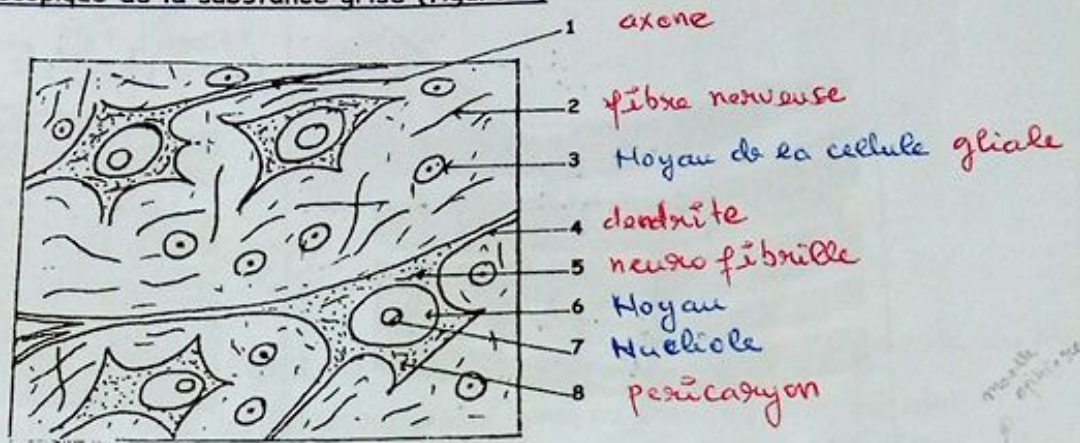 de la substance grise
1 axone
2 fibre nerveuse
3 Noyau de la cellule gliale
4 dendrite
5 neuro fibrille
6 Noyau
7 Nucliole
8 pericaryon